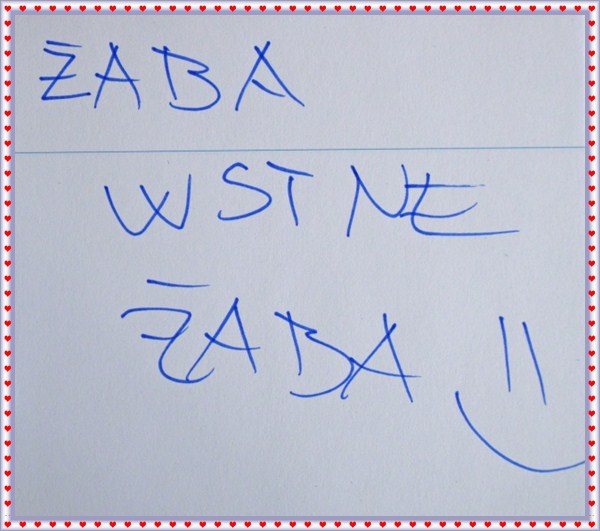 ŻABA
WSTNE
ŻABA =)